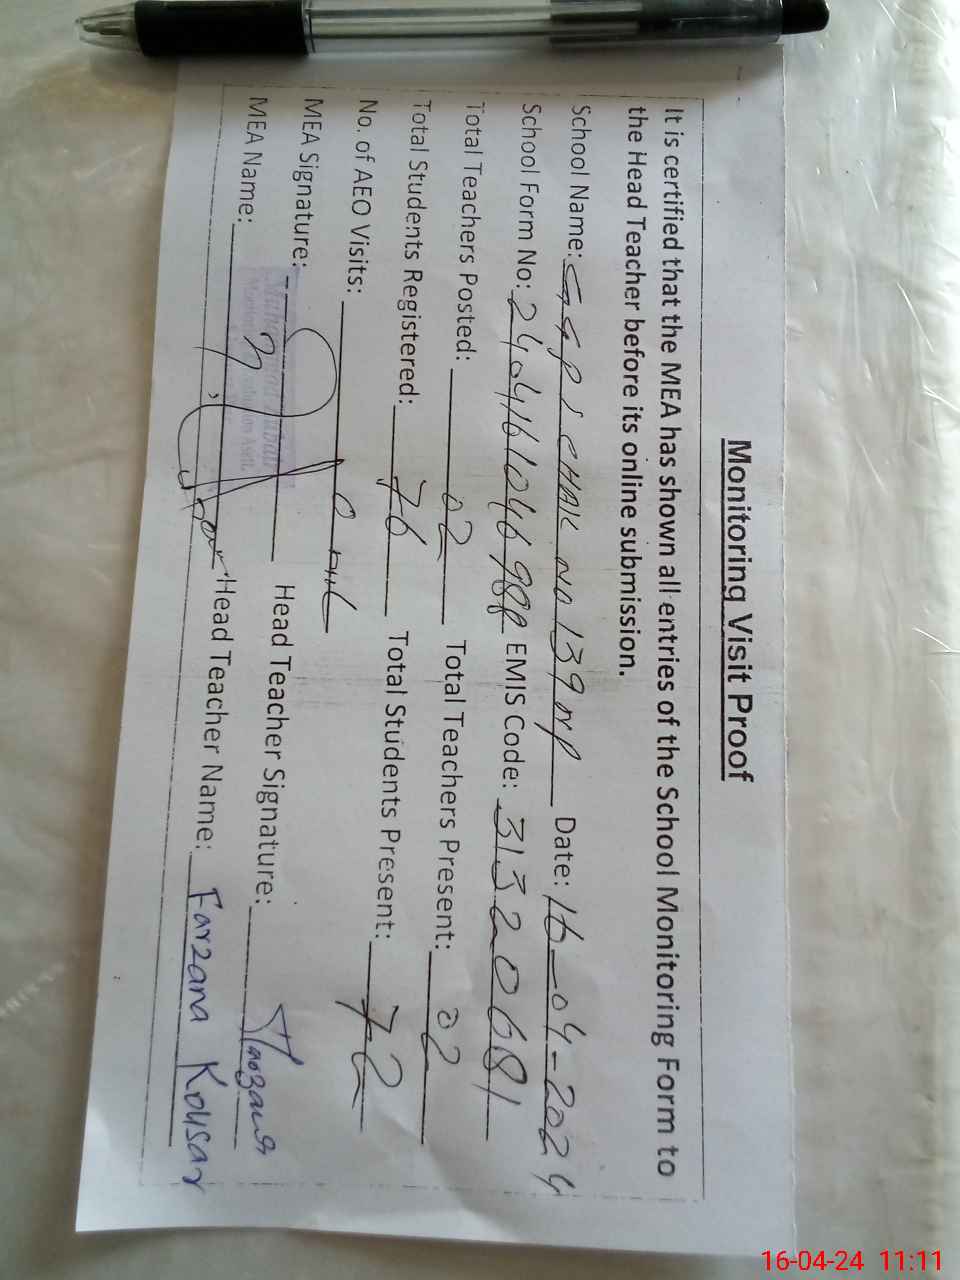 Monitoring Visit Proof
It is certified that the MEA has shown all entries of the School Monitoring Form to
the Head Teacher before its online submission.
School Name: GGPS CHAK NO 139 mp Date: 16-04-2024
School Form No: 2404161046988 EMIS Code: 31320681
Total Teachers Posted: 02 Total Teachers Present: 02
Total Students Registered: 76 Total Students Present: 72
No. of AEO Visits:
MEA Signature: Head Teacher Signature:
MEA Name: Head Teacher Name: Farzana Kousar
16-04-24 11:11